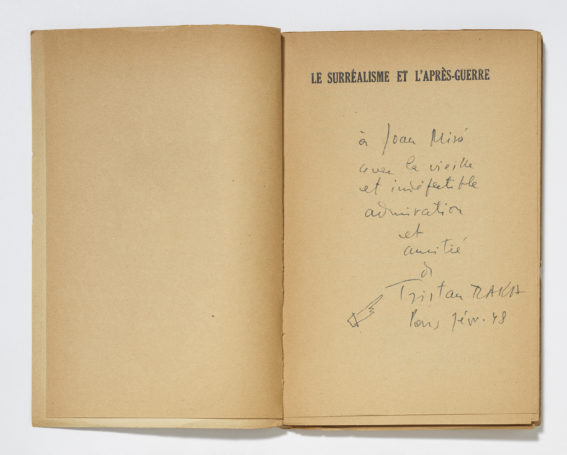 LE SURRÉALISME ET L'APRÈS-GUERRE
à Joan Miró
avec la vieille
et indéfectible
admiration
et
amitié
de
Tristan TZARA
Paris févr. 48